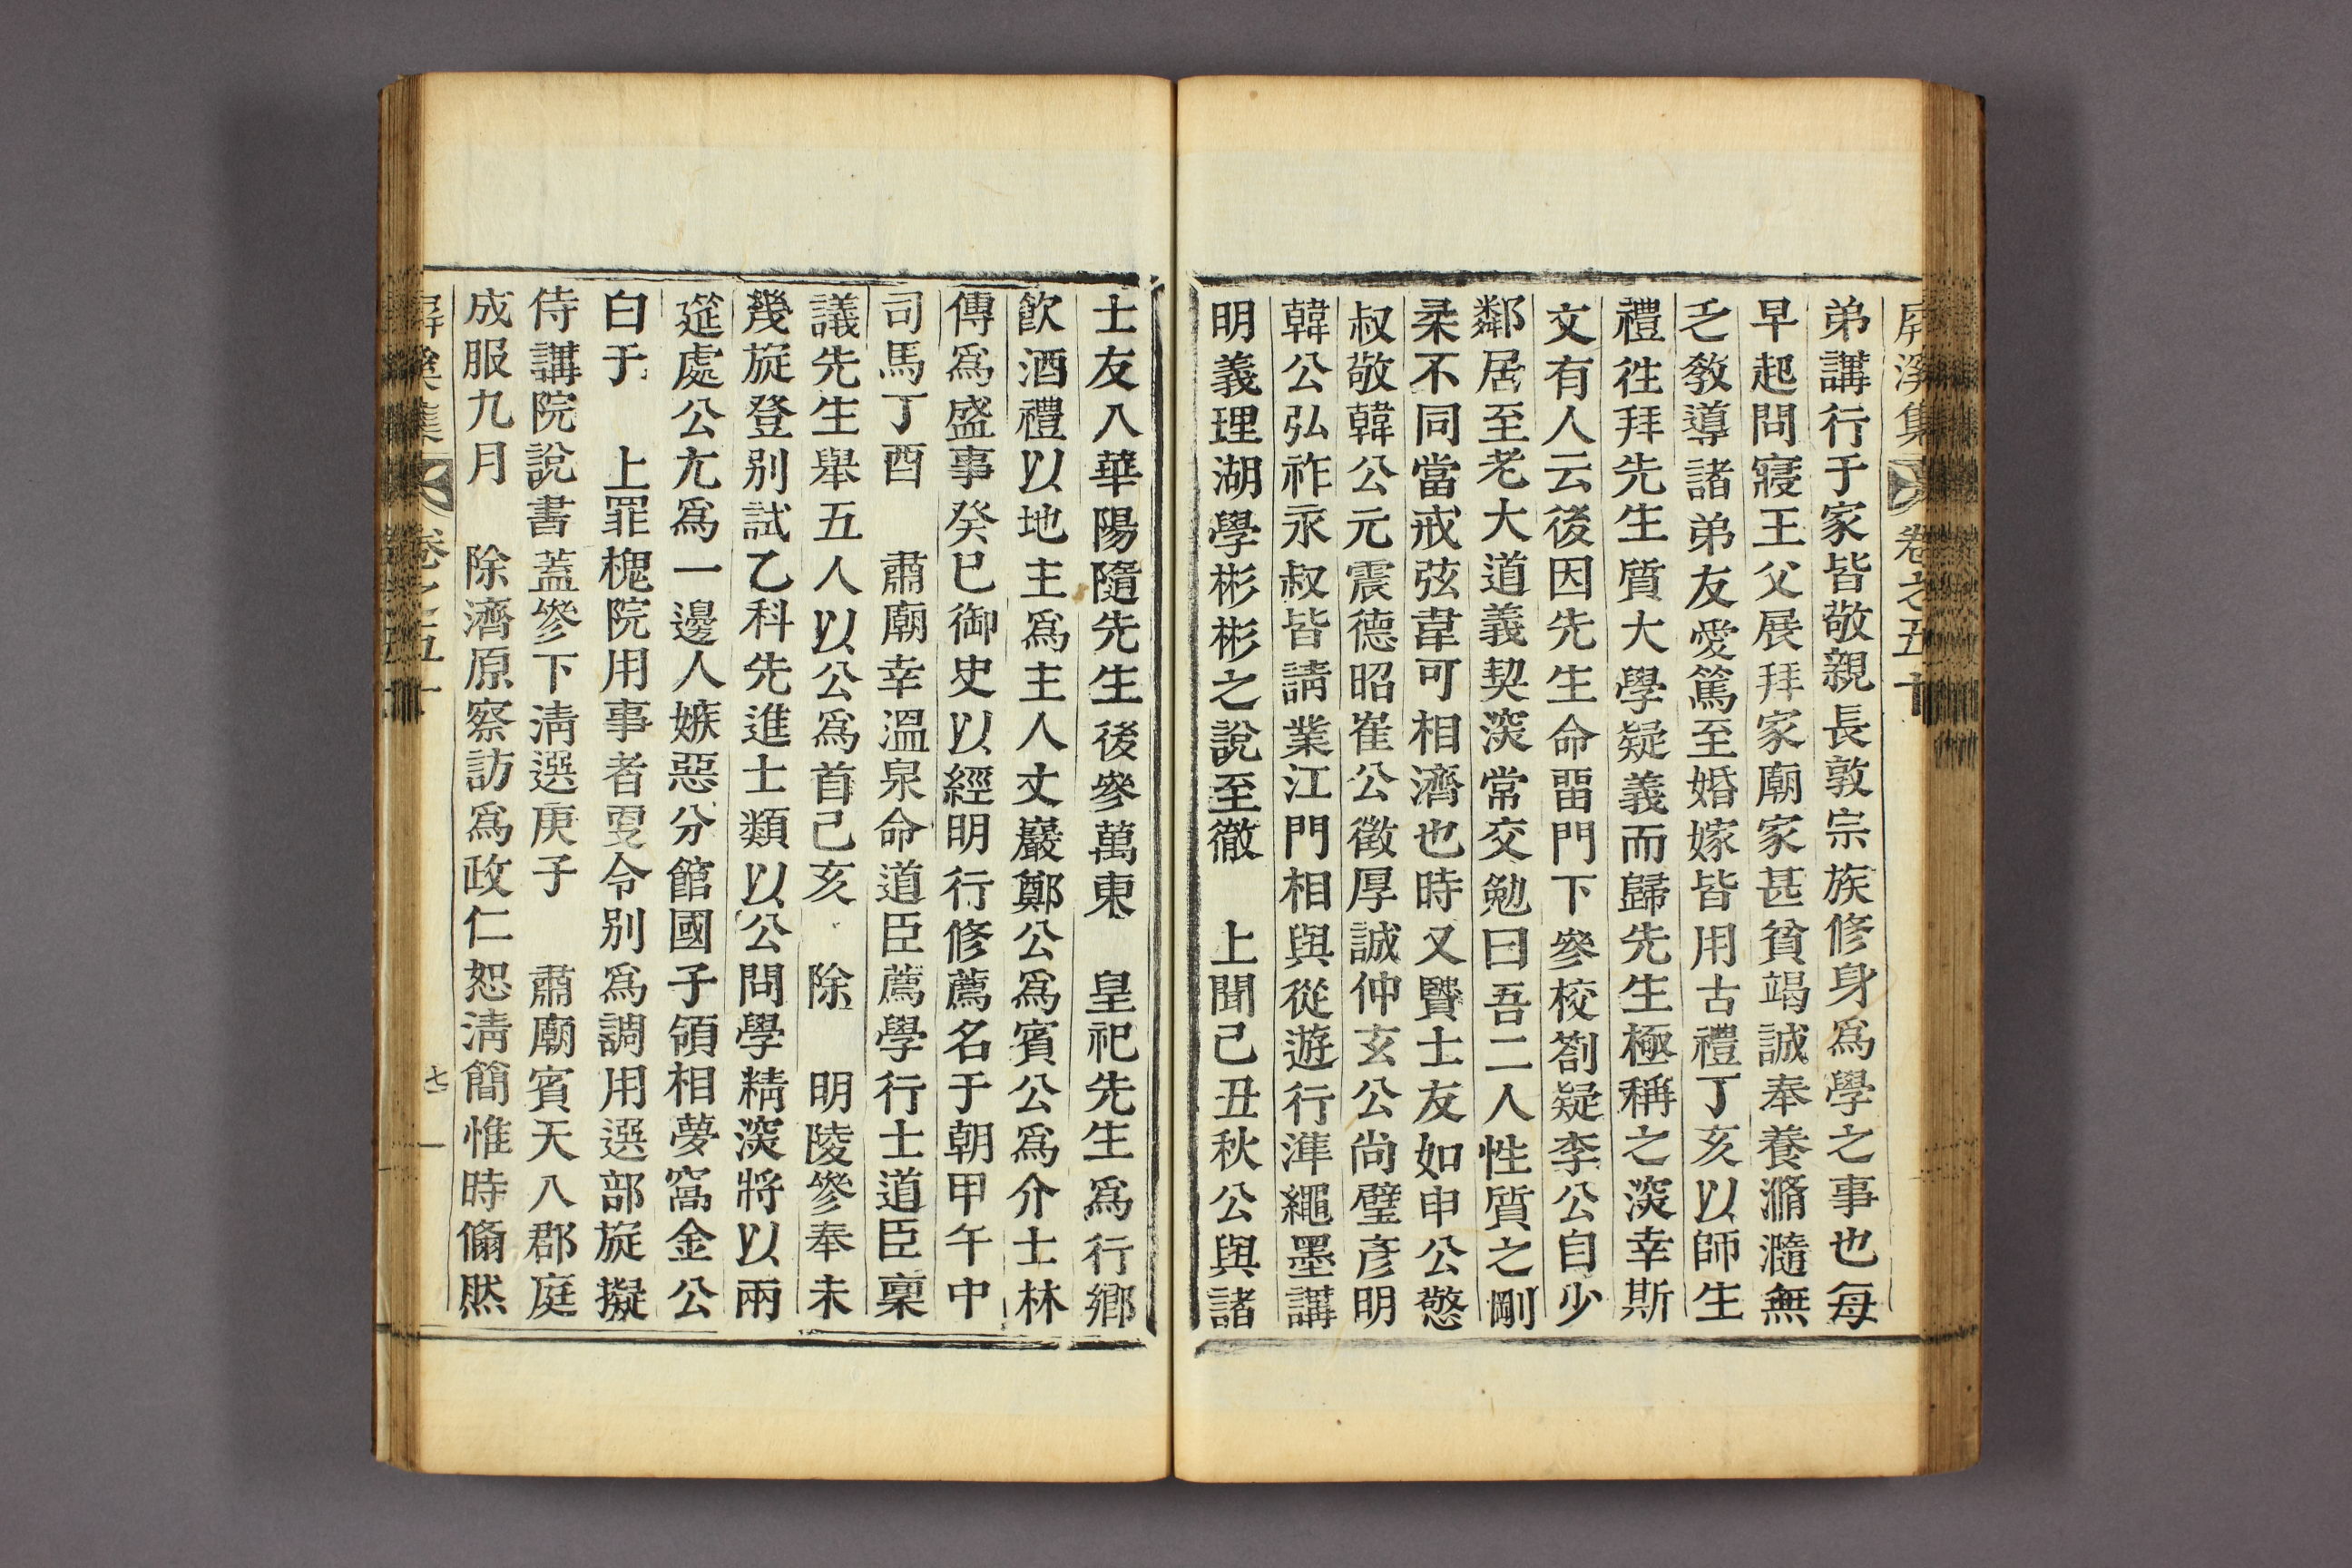 屛溪集 卷之五十
弟講行于家皆敬親長敦宗族修身爲學之事也每
早起問寢王父展拜家廟家甚貧竭誠奉養滫瀡無
乏敎導諸弟友愛篤至婚嫁皆用古禮丁亥以師生
禮徃拜先生質大學疑義而歸先生極稱之深幸斯
文有人云後因先生命留門下參校箚疑李公自少
鄰居至老大道義契深常交勉曰吾二人性質之剛
柔不同當戒弦韋可相濟也時又賢士友如申公慜
叔敬韓公元震德昭崔公徵厚誠仲玄公尙璧彦明
韓公弘祚永叔皆請業江門相與從遊行準繩墨講
明義理湖學彬彬之說至徹 上聞己丑秋公與諸
士友入華陽隨先生後參萬東 皇祀先生爲行鄕
飮酒禮以地主爲主人丈巖鄭公爲賓公爲介士林
傳爲盛事癸巳御史以經明行修薦名于朝甲午中
司馬丁酉 肅廟幸溫泉命道臣薦學行士道臣稟
議先生舉五人以公爲首己亥 除 明陵參奉未
幾旋登别試乙科先進士類以公問學精深將以兩
筵處公尤爲一邊人嫉惡分館國子領相夢窩金公
白于 上罪槐院用事者更令别爲調用選部旋擬
侍講院說書蓋參下淸選庚子 肅廟賓天入郡庭
成服九月 除濟原察訪爲政仁恕淸簡惟時翛然
屛溪集 卷之五十 七一